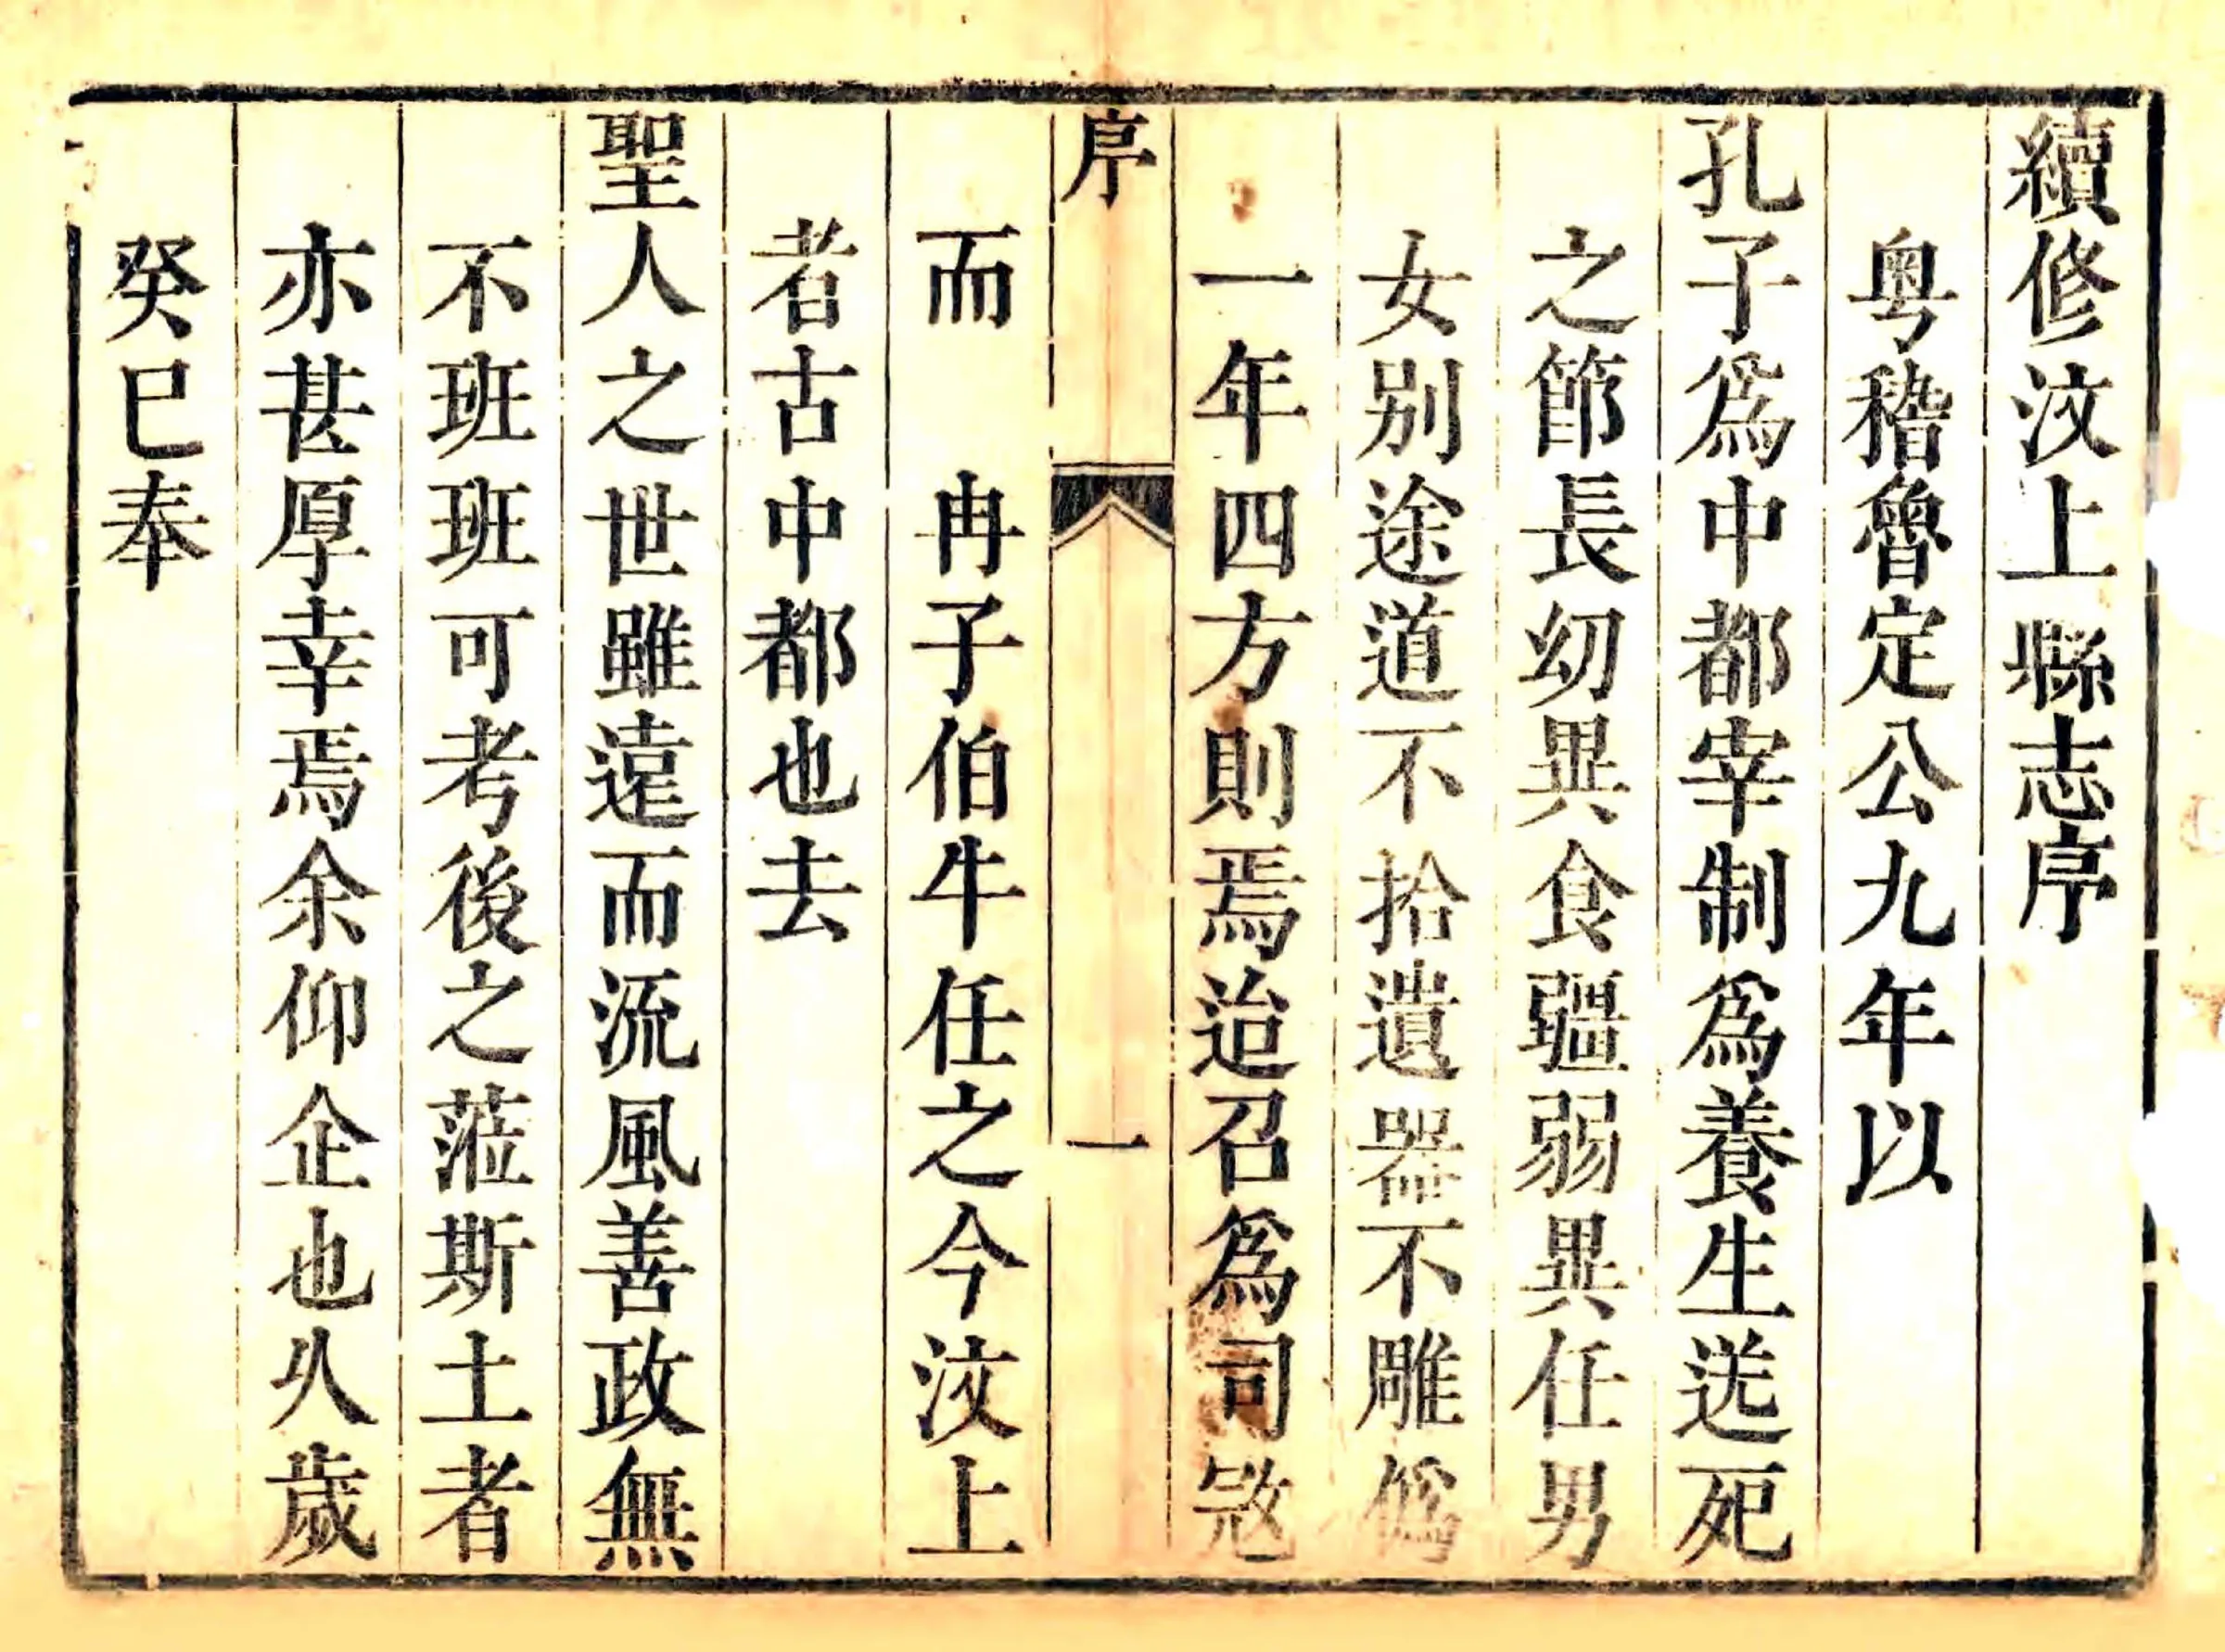 續修汶上縣志序
粤稽魯定公九年以
孔子爲中都宰制爲養生送死
之節長幼異食彊弱異任男
女别途道不拾遺器不雕僞
一年四方則焉迨召爲司
序
一
而　冉子伯牛任之今汶上
者古中都也去
聖人之世雖遠而流風善政無
不班班可考後之蒞斯土者
亦甚厚幸焉余仰企也乆歲
癸巳奉